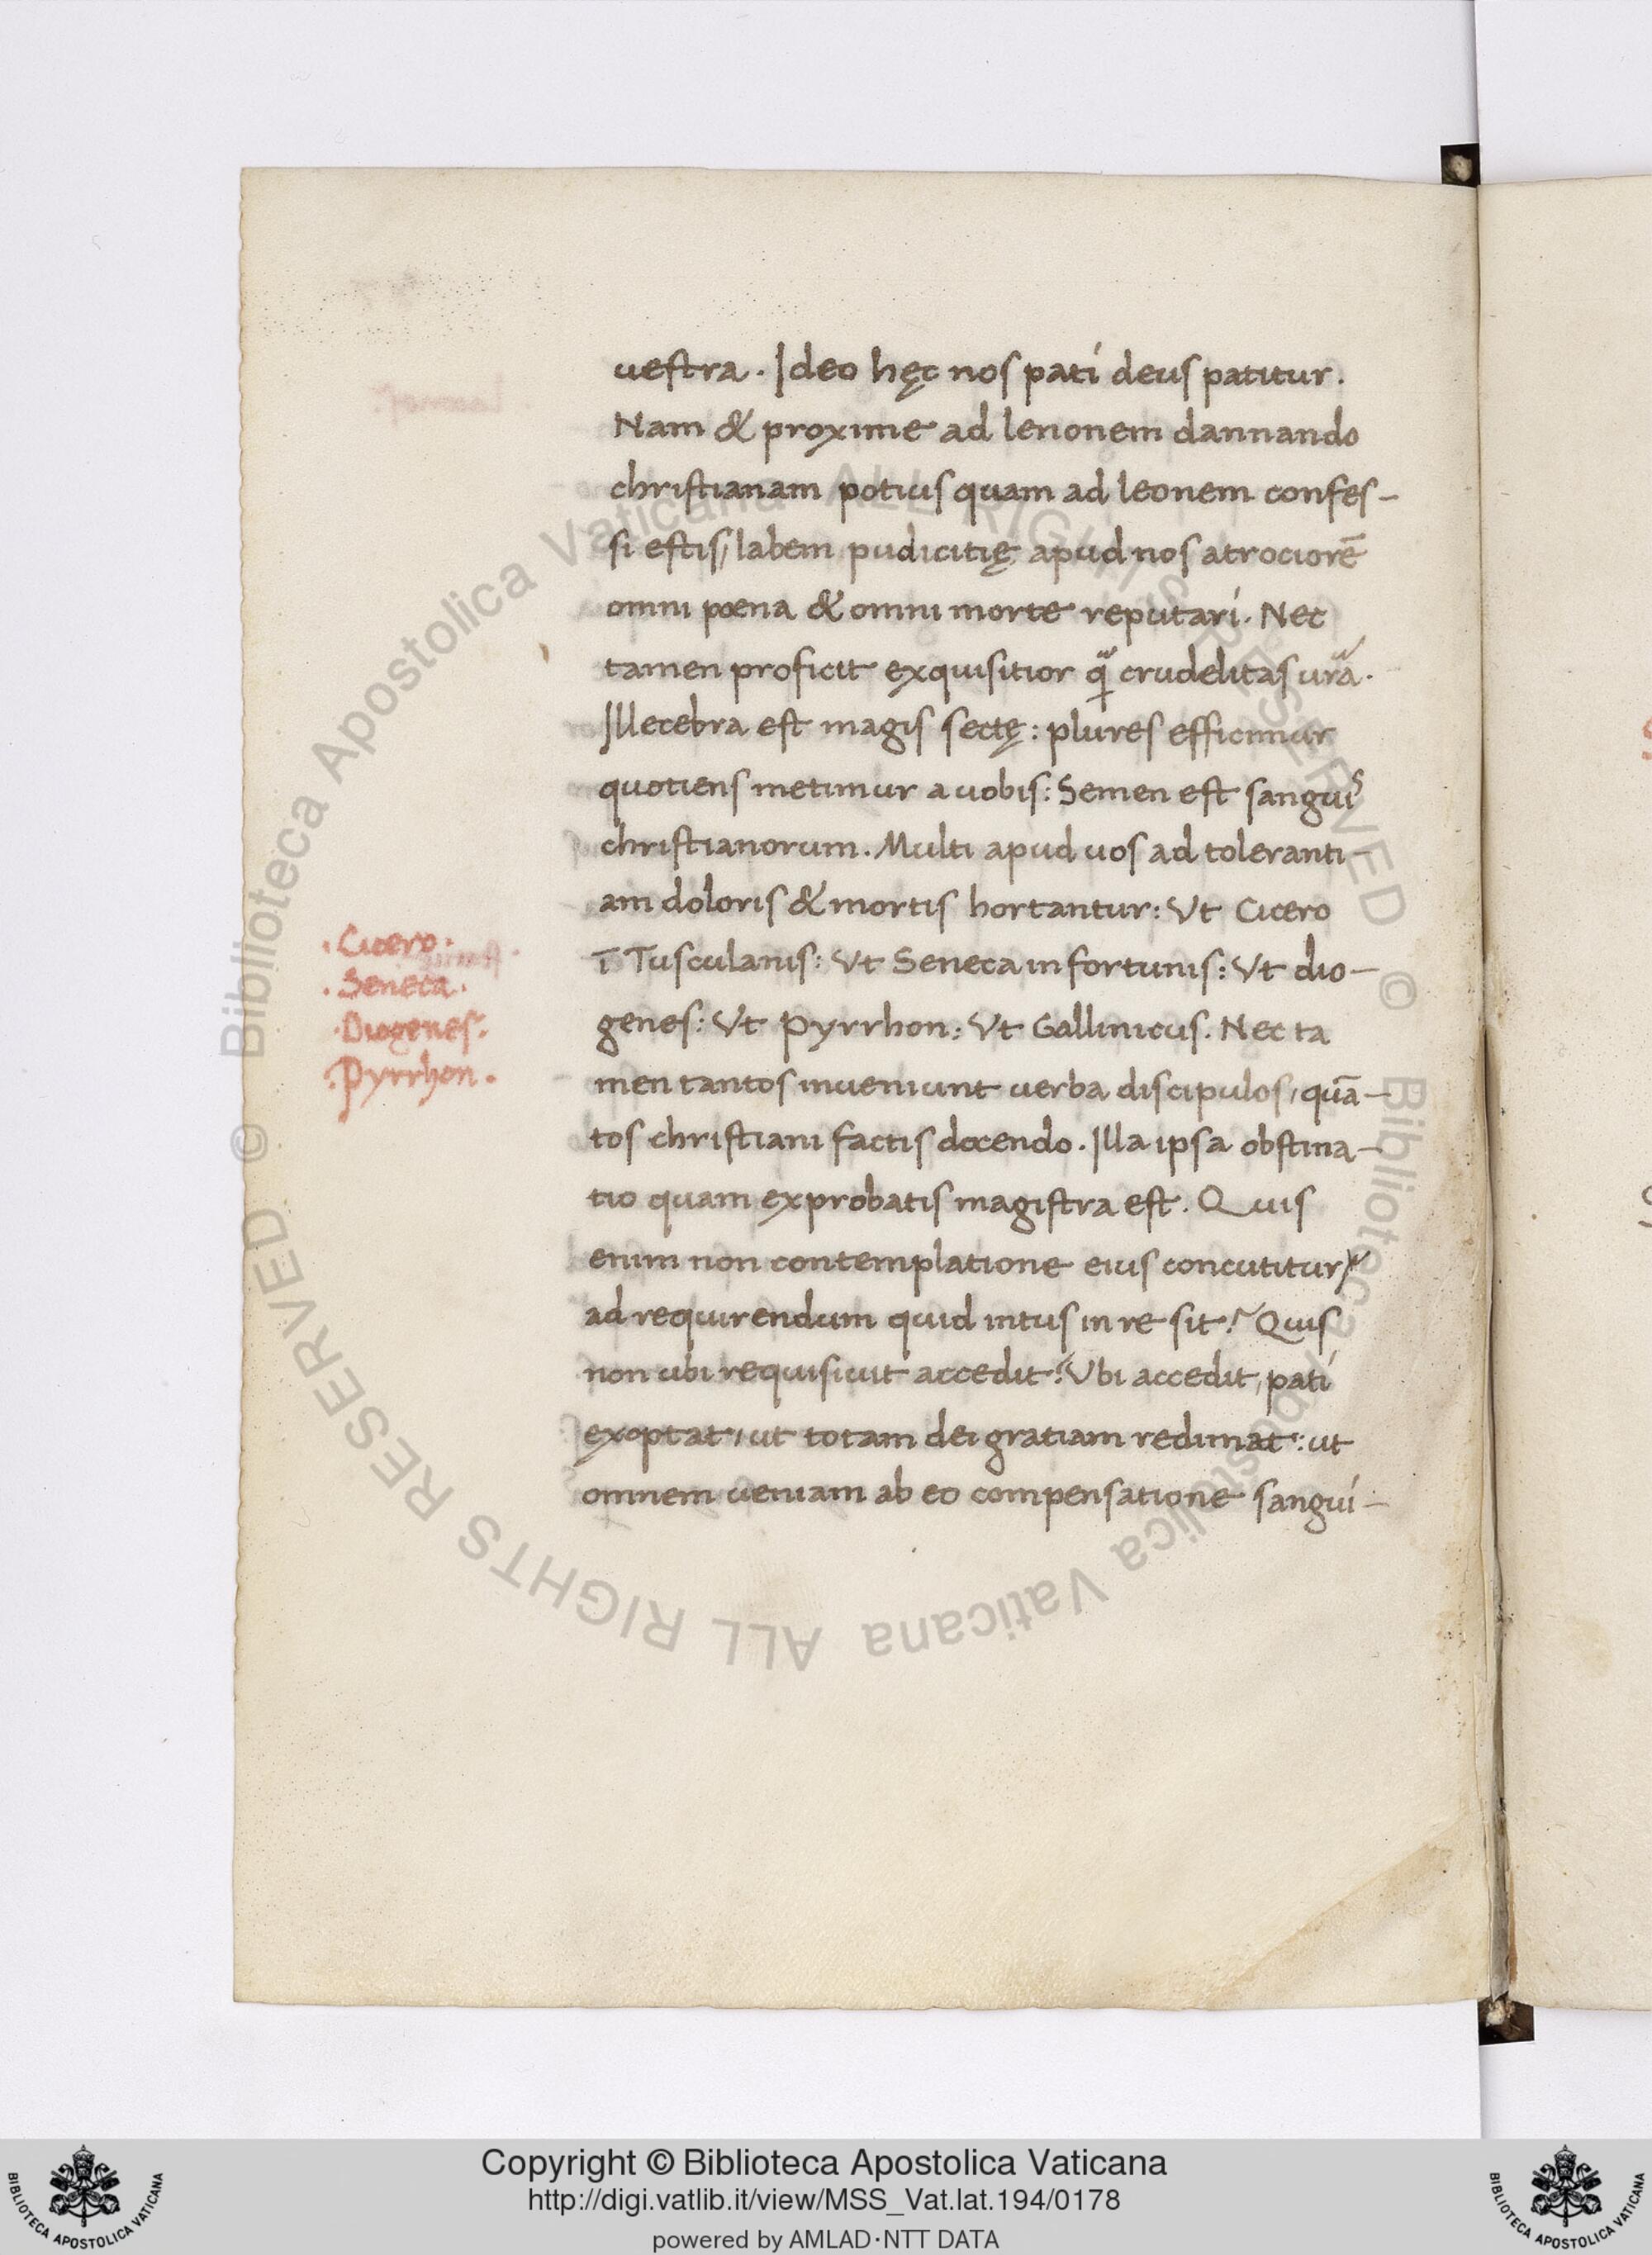 uestra. Ideo hęc nos pati deus patitur.
Nam & proxime ad lenonem dannando
christianam potius quam ad leonem confes-
si estis, labem pudicitię apud nos atrociorē
omni poena & omni morte reputari. Nec
tamen proficit exquisitior q̃ crudelitas ur̃a.
Illecebra est magis sectę: plures efficimur
quotiens metimur a uobis: Semen est sangui^s
christianorum. Multi apud uos ad toleranti-
am doloris & mortis hortantur: Vt Cicero
ī Tusculanis: Vt Seneca in fortunis: Vt dio-
genes: Vt Pyrrhon: Vt Gallinicus. Nec ta
men tantos inueniunt uerba discipulos, quā-
tos christiani factis docendo. Illa ipsa obstina-
tio quam exprobatis magistra est. Quis
enim non contemplatione eius concutitur
ad requirendum quid intus in re sit? Quis
non ubi requisiuit accedit? Vbi accedit, pati
exoptat, ut totam dei gratiam redimat: ut
omnem ueniam ab eo compensatione sangui-
.Cicero.
.Seneca.
.Diogenes.
.Pyrrhon.
© Biblioteca Apostolica Vaticana ALL RIGHTS RESERVED © Biblioteca Apostolica Vaticana ALL RIGHTS RESERVED
Copyright © Biblioteca Apostolica Vaticana
http://digi.vatlib.it/view/MSS_Vat.lat.194/0178
powered by AMLAD·NTT DATA
BIBLIOTECA APOSTOLICA VATICANA
BIBLIOTECA APOSTOLICA VATICANA